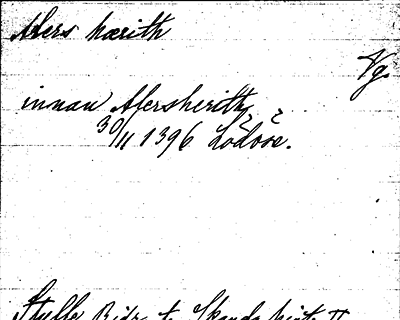 Afers hærith
Vg.
innan Afersherith,
30/11 1396 Lödöse.
Styffe Bidr. t. Skand. hist. II